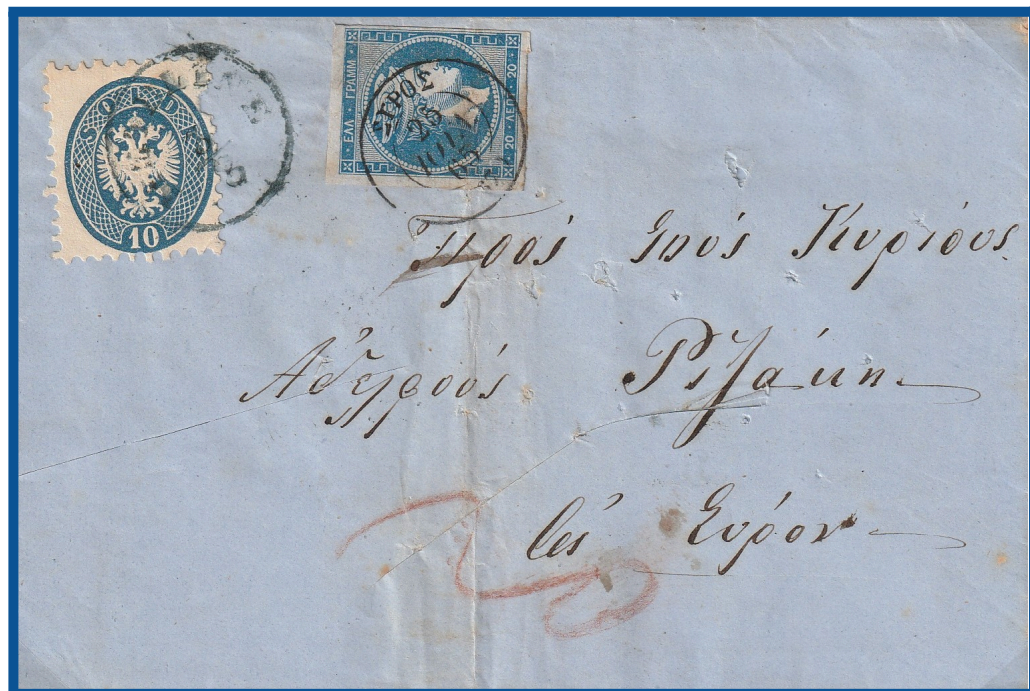 SOLDI
10
ΕΛΛ. ΓΡΑΜΜ.
20 ΛΕΠ. 20
ΣΥΡΟΣ
25
ΙΟΥΛ
Πρὸς τοὺς Κυρίους
Ἀδελφοὺς Ριζάκη
εἰς Σύρον
20